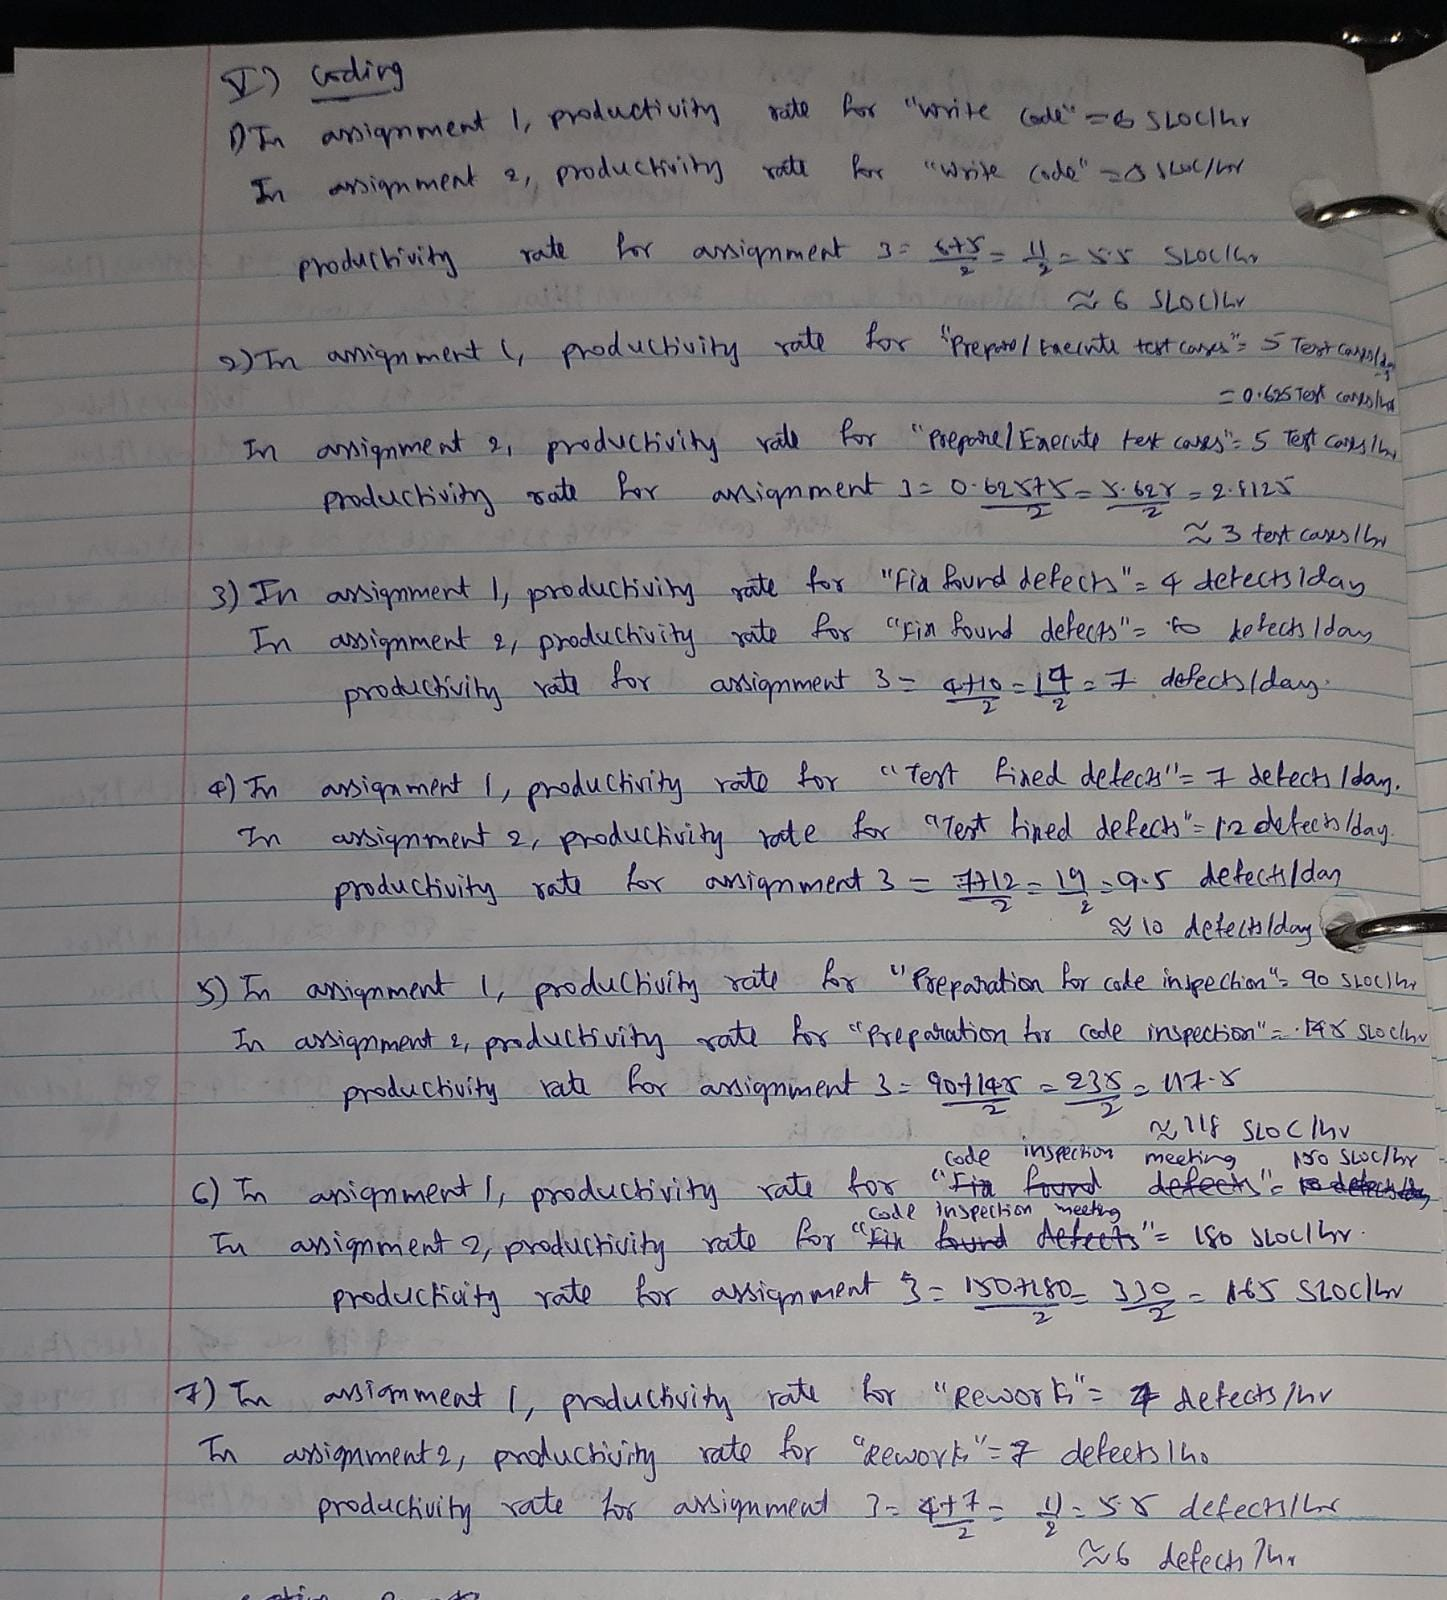 V) Coding
1) In assignment 1, productivity rate for "write code" = 6 SLOC/hr
In assignment 2, productivity rate for "write code" = 5 SLOC/hr
productivity rate for assignment 3 = 6+5/2 = 11/2 = 5.5 SLOC/hr
≈ 6 SLOC/hr
2) In assignment 1, productivity rate for "Prepare/Execute test cases" = 5 Test cases/day
= 0.625 Test cases/hr
In assignment 2, productivity rate for "Prepare/Execute test cases" = 5 Test cases/hr
productivity rate for assignment 3 = 0.625+5/2 = 5.625/2 = 2.8125
≈ 3 test cases/hr
3) In assignment 1, productivity rate for "Fix found defects" = 4 defects/day
In assignment 2, productivity rate for "Fix found defects" = 10 defects/day
productivity rate for assignment 3 = 4+10/2 = 14/2 = 7 defects/day.
4) In assignment 1, productivity rate for "Test fixed defects" = 7 defects/day.
In assignment 2, productivity rate for "Test fixed defects" = 12 defects/day.
productivity rate for assignment 3 = 7+12/2 = 19/2 = 9.5 defects/day
≈ 10 defects/day
5) In assignment 1, productivity rate for "Preparation for code inspection" = 90 SLOC/hr
In assignment 2, productivity rate for "Preparation for code inspection" = 145 SLOC/hr
productivity rate for assignment 3 = 90+145/2 = 235/2 = 117.5
≈ 118 SLOC/hr
code inspection meeting 150 SLOC/hr
6) In assignment 1, productivity rate for "Fix found defects" =
code inspection meeting
In assignment 2, productivity rate for "Fix found defects" = 180 SLOC/hr.
productivity rate for assignment 3 = 150+180/2 = 330/2 = 165 SLOC/hr
7) In assignment 1, productivity rate for "Rework" = 4 defects/hr
In assignment 2, productivity rate for "Rework" = 7 defects/hr
productivity rate for assignment 3 = 4+7/2 = 11/2 = 5.5 defects/hr
≈ 6 defects/hr